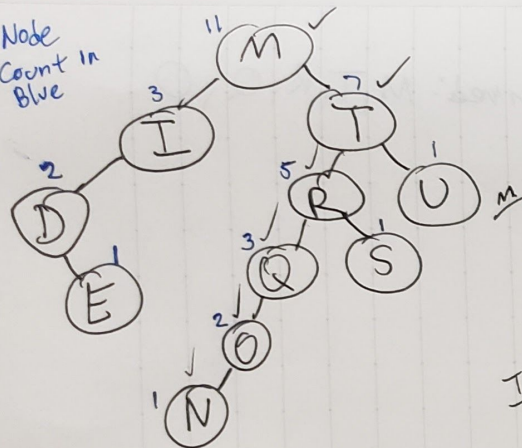 Node
Count in
Blue
11
M
3
I
7
T
2
D
5
R
1
U
1
E
3
Q
1
S
2
O
1
N